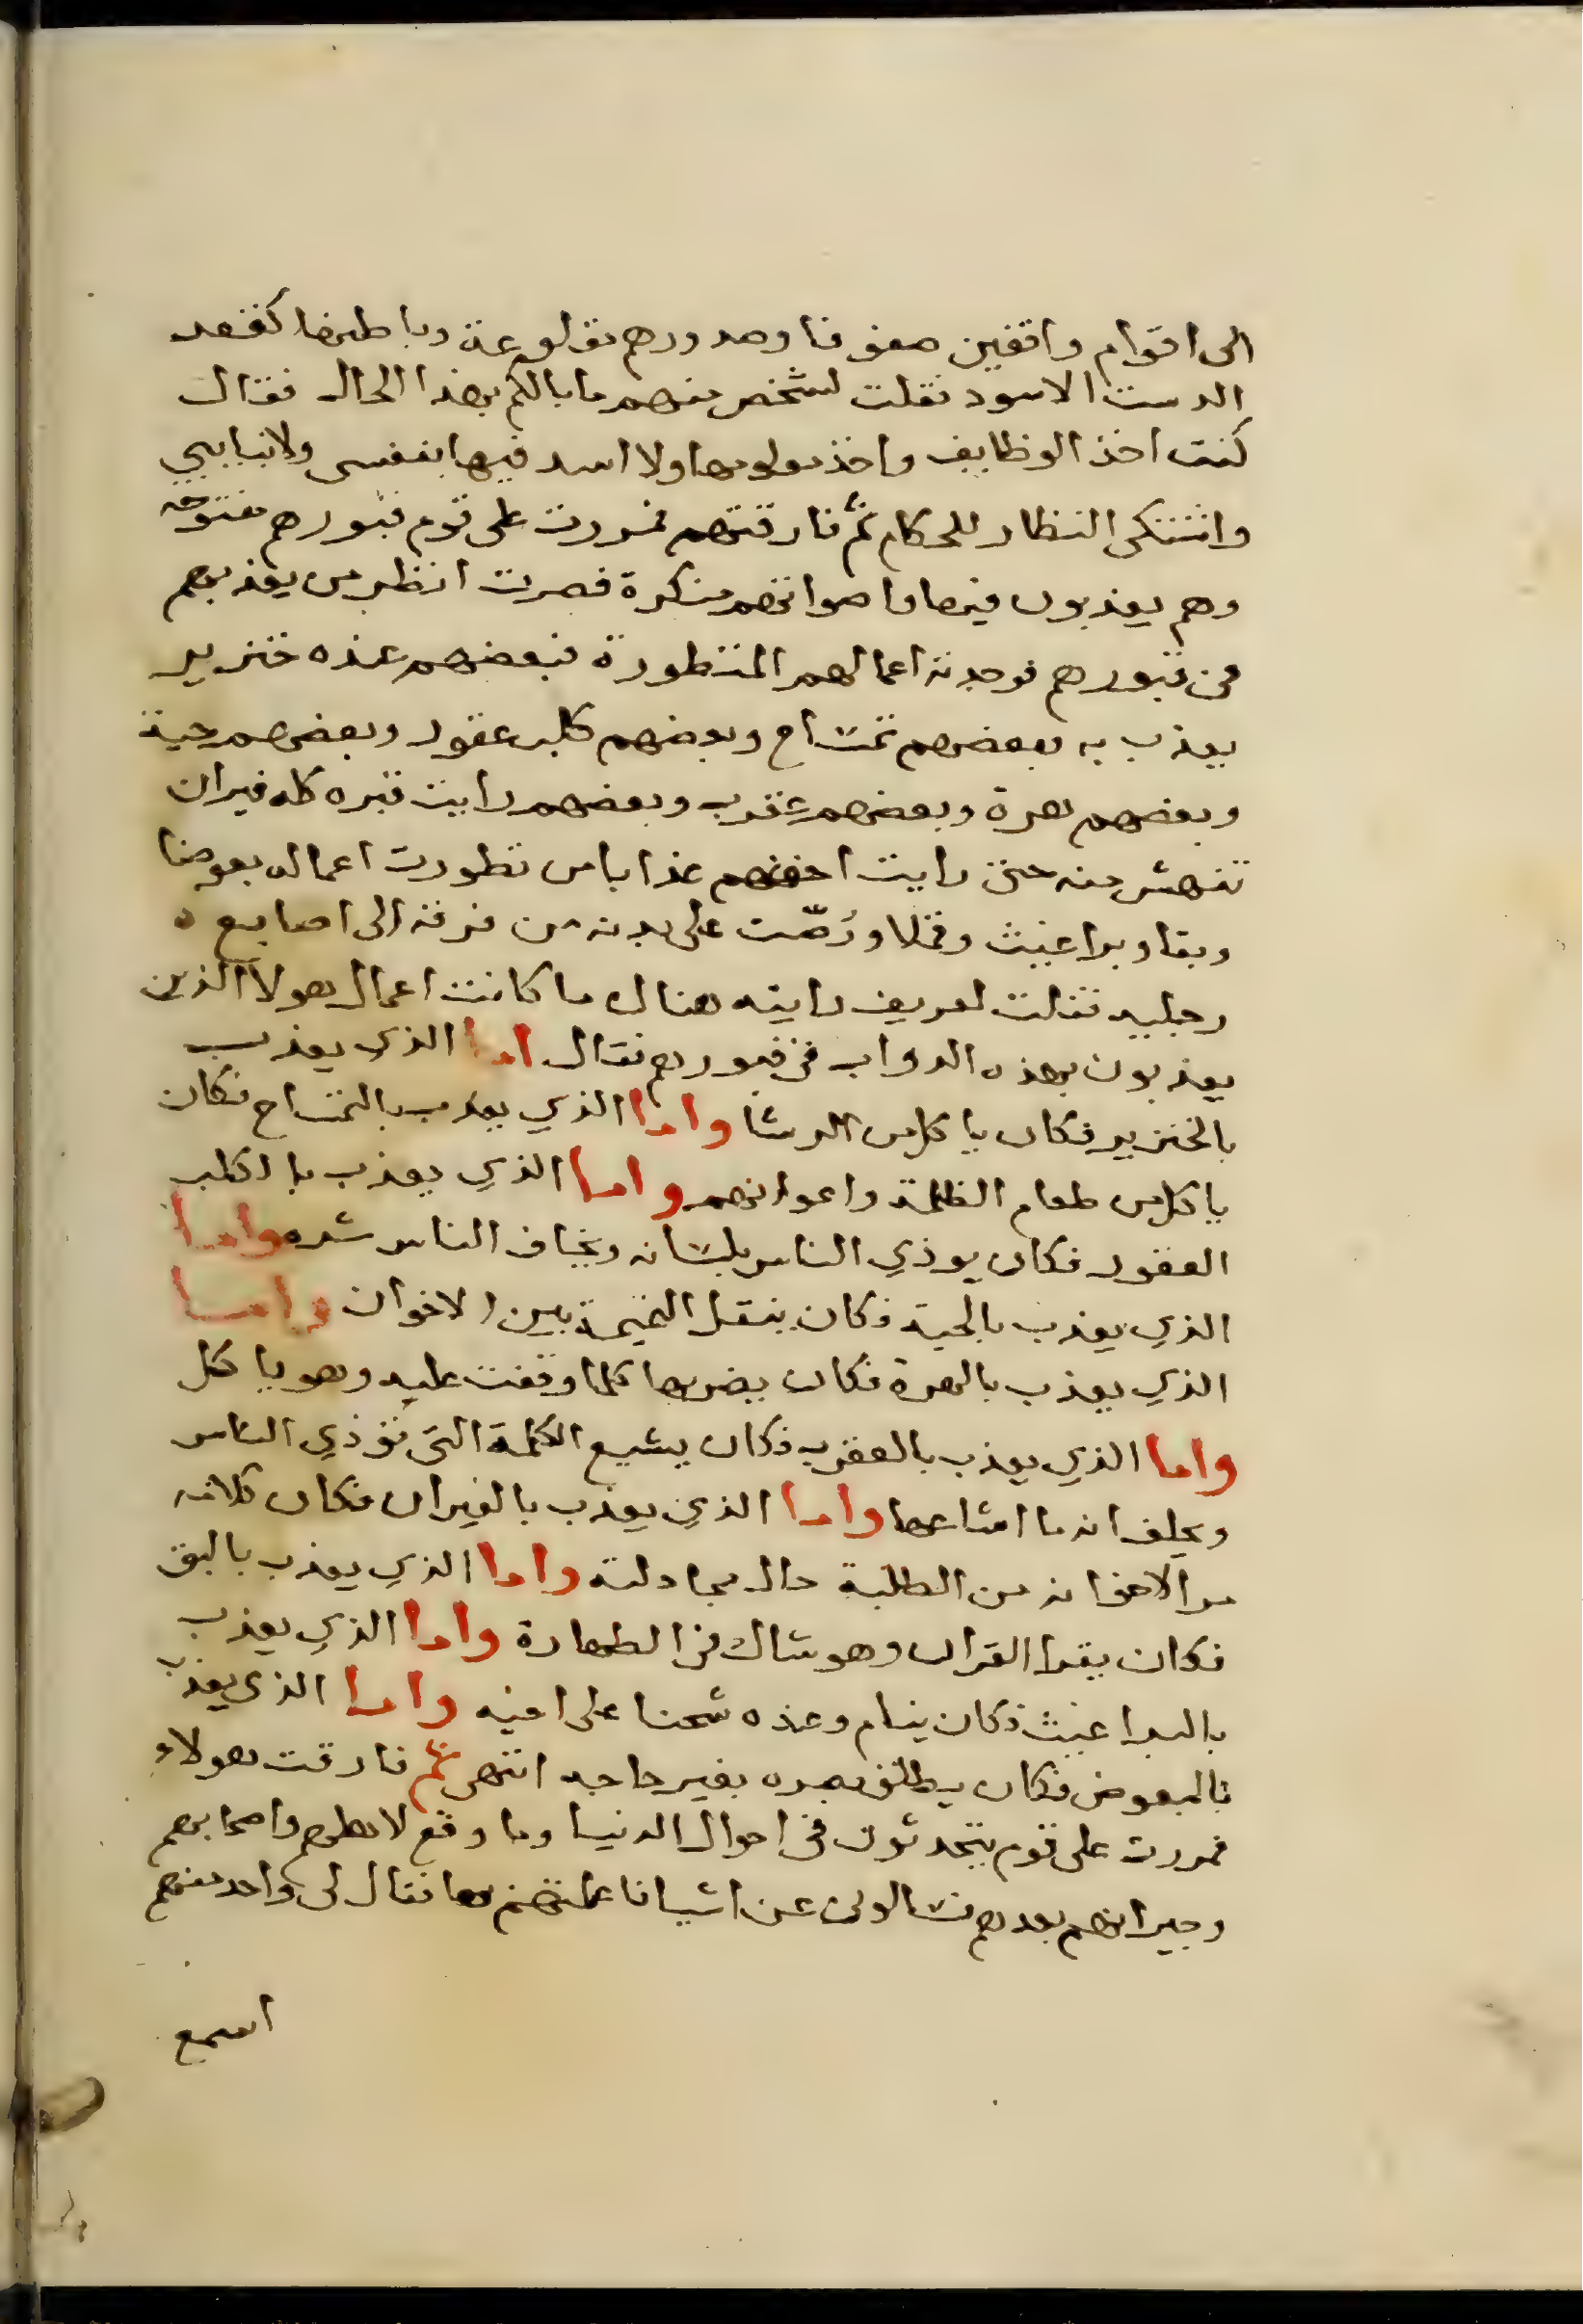 الى اقوام واقفين صفوفا وصدورهم مقلوعة وباطنها كقعد
الدست الاسود فقلت لشخص منهم ما بالكم بهذا الحال فقال
كنت اخذ الوظايف واخذ معلومها ولا اسد فيها بنفسى ولا بنايبي
واشتكى النظار للحكام ثم فارقتهم فمررت على قوم قبورهم مفتوحه
وهم يعذبون فيها واصواتهم منكرة فصرت انظر من يعذبهم
فى قبورهم فوجدته اعمالهم المتطورة فبعضهم عنده خنزير
يعذب به وبعضهم تمساح وبعضهم كلب عقور وبعضهم حية
وبعضهم هرة وبعضهم عقرب وبعضهم رايت قبره كله فيران
تنهش منه حتى رايت اخفهم عذابا من تطورت اعماله بعوضا
وبقا وبراغيث وقملا ورُصّت على بدنه من فرقه الى اصابع
رجليه فقلت لعريف رايته هناك ما كانت اعمال هولا الذين
يعذبون بهذه الدواب فى قبورهم فقال اما الذي يعذب
بالخنزير فكان ياكل من الرشا واما الذي يعذب بالتمساح فكان
ياكل من طعام الظلمة واعوانهم واما الذي يعذب بالكلب
العقور فكان يوذي الناس بلسانه ويخاف الناس شره واما
الذي يعذب بالحية فكان ينقل النميمة بين الاخوان واما
الذي يعذب بالهرة فكان يضربها كلما وقفت عليه وهو ياكل
واما الذي يعذب بالعقرب فكان يشيع الكلمة التى تؤذي الناس
ويحلف انه ما اشاعها واما الذي يعذب بالفيران فكان كلامه
مر الاخوانه من الطلبة حال مجادلته واما الذي يعذب بالبق
فكان يقرا القران وهو شاك فى الطهارة واما الذي يعذب
بالبراغيث فكان ينام وعنده شحنا على اخيه واما الذى يعذب
بالبعوض فكان يطلق بصره بغير حاجه انتهى ثم فارقت هولاء
فمررت على قوم يتحدثون فى احوال الدنيا وما وقع لاهلهم واصحابهم
وجيرانهم بعدهم فسالونى عن اشيا فاعلمتهم بها فقال لى واحد منهم
اسمع